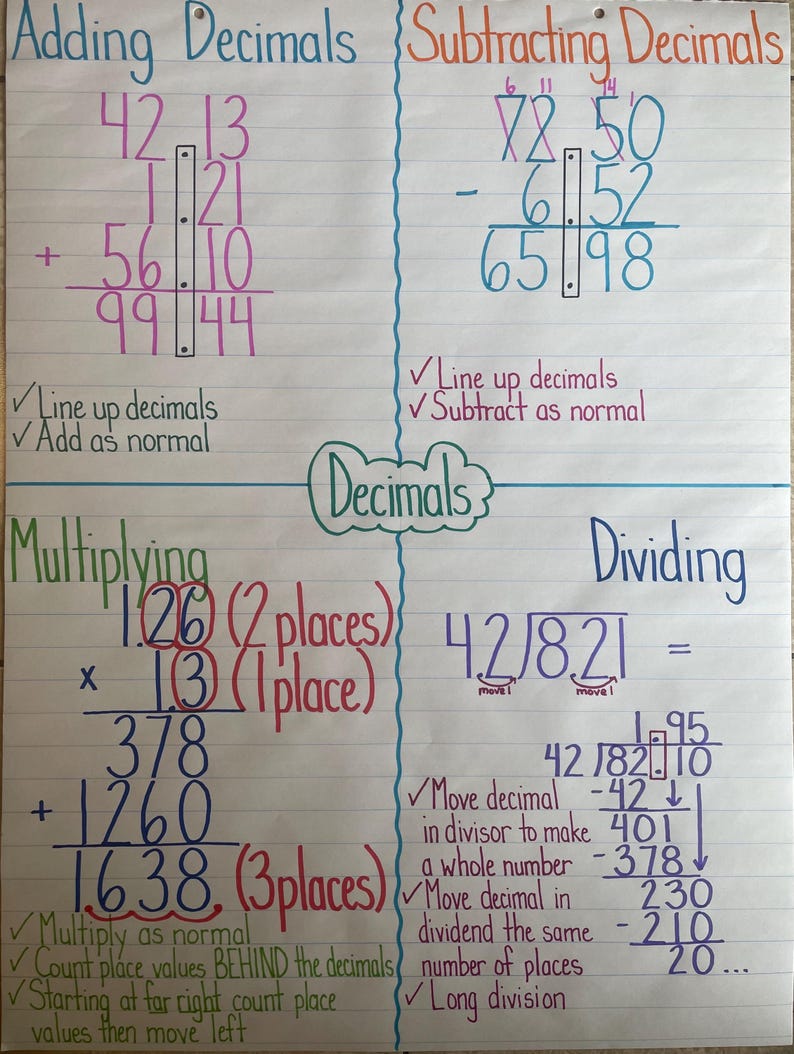 Adding Decimals
42.13
1.21
+ 56.10
99.44
✓Line up decimals
✓Add as normal
Subtracting Decimals
6 11 14 1
72.50
- 6.52
65.98
✓Line up decimals
✓Subtract as normal
Decimals
Multiplying
1.26 (2 places)
x 1.3 (1 place)
378
+ 1260
1.638 (3 places)
✓Multiply as normal
✓Count place values BEHIND the decimals
✓Starting at far right count place
values then move left
Dividing
4.2)8.21 =
move 1 move 1
1.95
42)82.10
-42
401
-378
230
-210
20...
✓Move decimal
in divisor to make
a whole number
✓Move decimal in
dividend the same
number of places
✓Long division